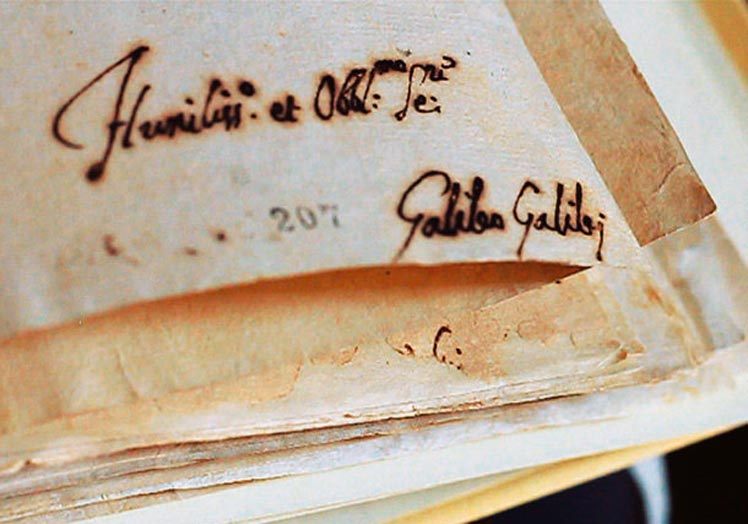 Humiliss.o et Obbl:mo Se:re
207
Galileo Galilei